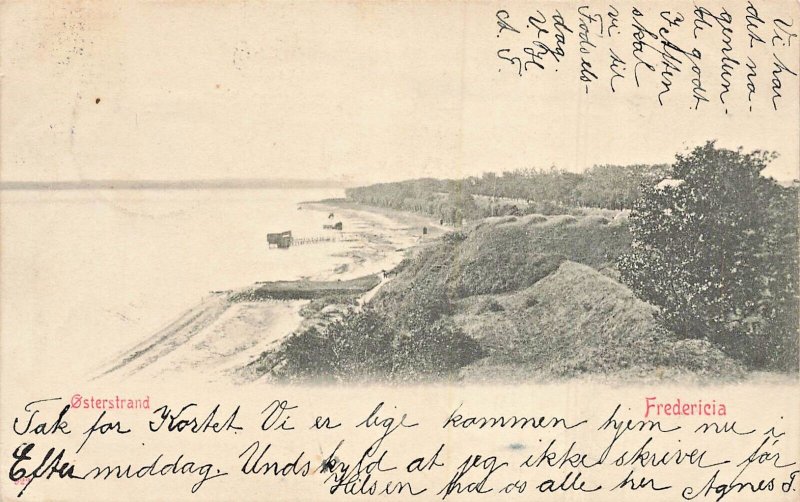 Vi har
det no-
genlun-
de godt.
I Aften
skal
vi til
Fødsels-
dag.
V. H
A. F.
Østerstrand
Fredericia
Tak for Kortet. Vi er lige kommen hjem nu i
Eftermiddag. Undskyld at jeg ikke skriver før
Hilsen fra os alle her Agnes F.